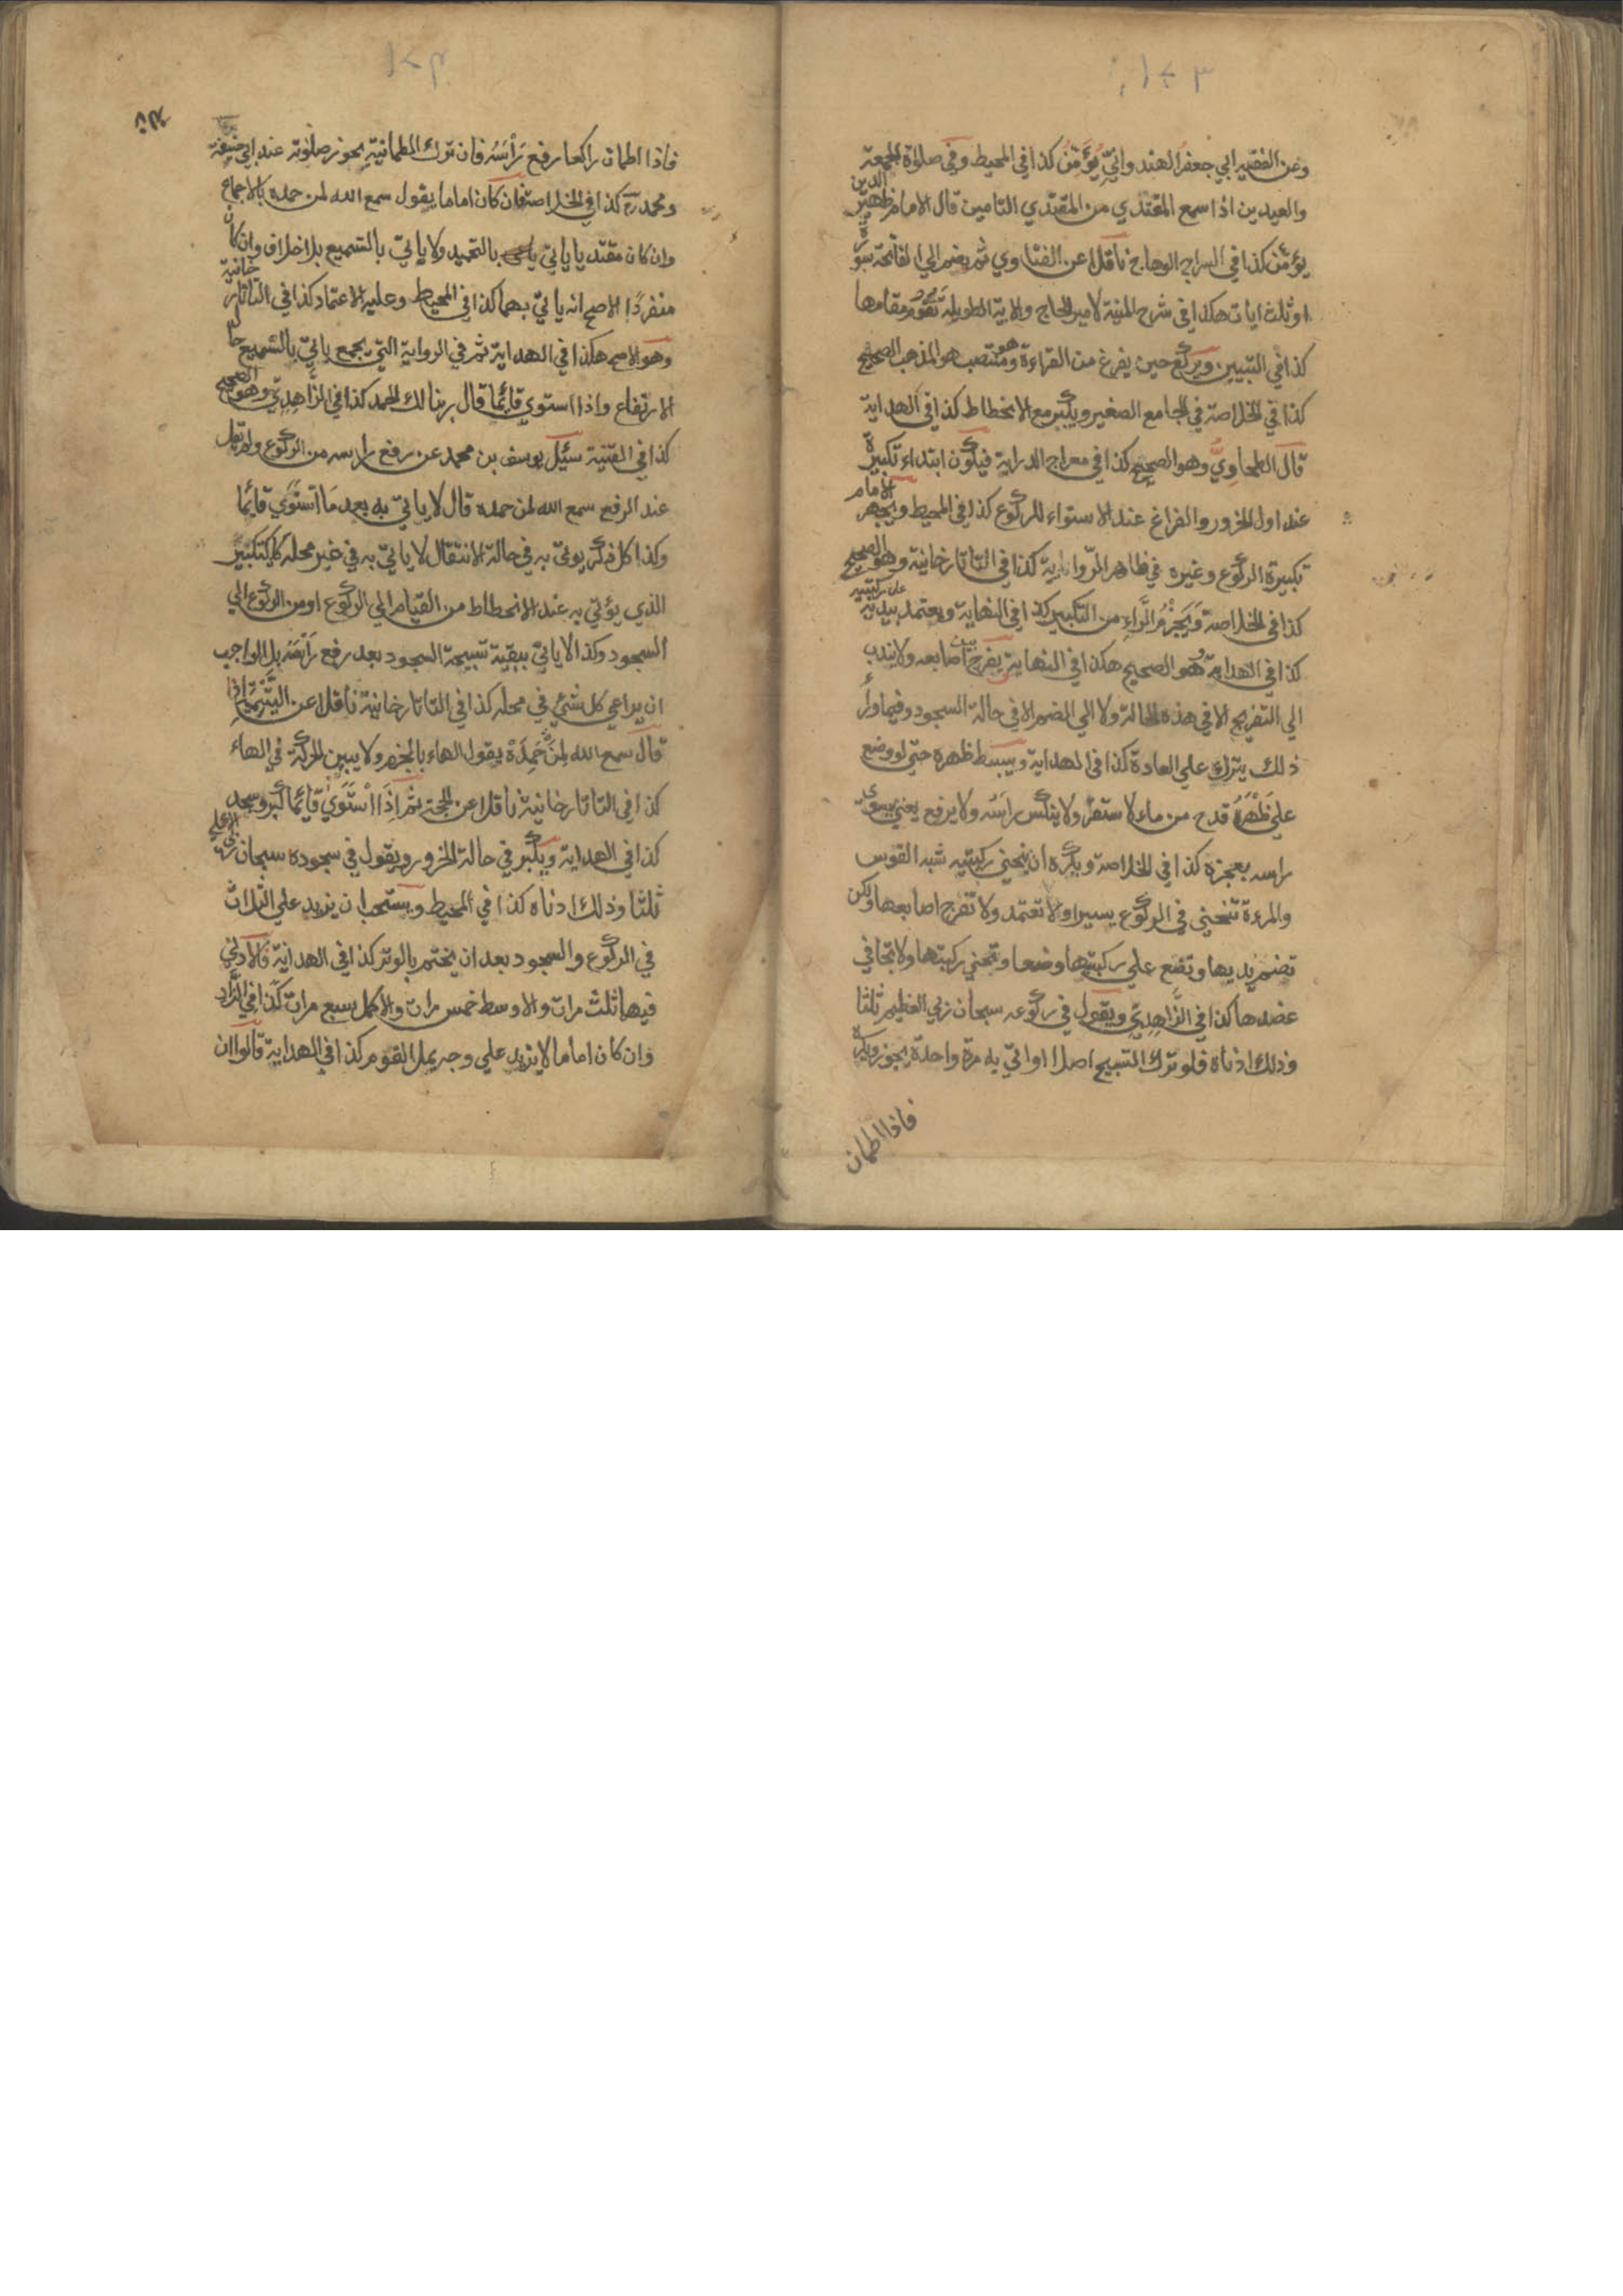 ١٢٣
وعن الفقيه ابي جعفر الهندواني يؤمن كذا في المحيط وفي صلوة الجمعة
والعيدين اذا سمع المقتدي من المقتدي التامين قال الامام ظهير الدين
يؤمن كذا في السراج الوهاج ناقلا عن الفتاوي ثم يضم الي الفاتحة سورة
او ثلث ايات هكذا في شرح المنية لامير الحاج والاية الطويلة تقوم مقامها
كذا في التبيين ويركع حين يفرغ من القراءة وهو منتصب هو المذهب الصحيح
كذا في الخلاصة في الجامع الصغير ويكبر مع الانحطاط كذا في الهداية
قال الطحاوي وهو الصحيح كذا في معراج الدراية فيكون ابتداء تكبيرة
عند اول الخرور والفراغ عند الاستواء للركوع كذا في المحيط ويجهر الامام
تكبيرة الركوع وغيره في ظاهر الرواية كذا في التاتارخانية وهو الصحيح
كذا في الخلاصة ويجزم الراء من التكبير كذا في النهاية ويعتمد بيديه على ركبتيه
كذا في الهداية هو الصحيح هكذا في النهاية يفرج بين اصابعه ولا يندب
الي التفريج الا في هذه الحالة ولا الي الضم الا في حالة السجود وفيما وراء
ذلك يترك علي العادة كذا في الهداية ويبسط ظهره حتي لو وضع
علي ظهره قدح من ماء لاستقر ولا ينكس راسه ولا يرفع يعني يسوي
راسه بعجزه كذا في الخلاصة ويكره ان يحني ركبتيه شبه القوس
والمرءة تنحني في الركوع يسيرا ولا تعتمد ولا تفرج اصابعها ولكن
تضم يديها وتضع علي ركبتيها وضعا وتحني ركبتها ولا تجافي
عضدها كذا في الزاهدي ويقول في ركوعه سبحان ربي العظيم ثلثا
وذلك ادناه فلو ترك التسبيح اصلا او اتي به مرة واحدة يجوز ويكره
فاذا اطمان
١٢٤
فاذا اطمان راكعا رفع رأسه فان ترك الطمانية يجوز صلوته عند ابي حنيفة
ومحمد رح كذا في الخلاصة فان كان اماما يقول سمع الله لمن حمده بالاجماع
وان كان مقتديا ياتي بالتحميد ولا ياتي بالتسميع بلا خلاف وان كان
منفردا الاصح انه ياتي بهما كذا في المحيط وعليه الاعتماد كذا في التاتارخانية
وهو الاصح هكذا في الهداية ثم في الرواية التي يجمع ياتي بالتسميع حال
الارتفاع واذا استوي قايما قال ربنا لك الحمد كذا في الزاهدي وهو الصحيح
كذا في القنية سئيل يوسف بن محمد عن رفع راسه من الركوع ولم يقل
عند الرفع سمع الله لمن حمده قال لا ياتي به بعد ما استوي قايما
وكذا كل ذكر يوتى به في حالة الانتقال لا ياتي به في غير محله كالتكبير
الذي يؤتي به عند الانحطاط من القيام الي الركوع او من الركوع الي
السجود وكذا لا ياتي ببقية تسبيحة السجود بعد رفع رأسه بل الواجب
ان يراعي كل شئ في محله كذا في التاتارخانية ناقلا عن اليتيمة اذا
قال سمع الله لمن حمده يقول الهاء بالجزم ولا يبين الحركة في الهاء
كذا في التاتارخانية ناقلا عن الحجة ثم اذا استوي قايما كبر وسجد
كذا في الهداية ويكبر في حالة الخرور ويقول في سجوده سبحان ربي الاعلي
ثلثا وذلك ادناه كذا في المحيط ويستحب ان يزيد علي الثلاث
في الركوع والسجود بعد ان يختم بالوتر كذا في الهداية فالادني
فيها ثلث مرات والاوسط خمس مرات والاكمل سبع مرات كذا في الزاد
وان كان اماما لا يزيد علي وجه يمل القوم كذا في الهداية قالوا ان